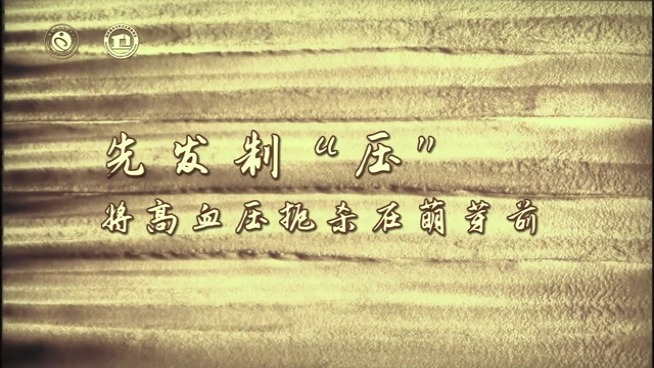 先发制“压”
将高血压扼杀在萌芽前